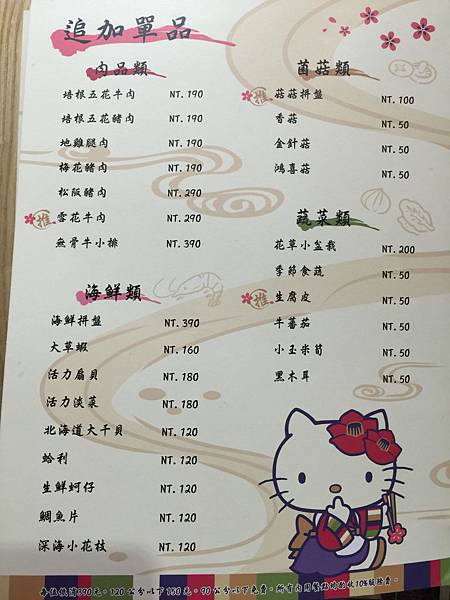 追加單品
肉品類
培根五花牛肉 NT.190
培根五花豬肉 NT.190
地雞腿肉 NT.190
梅花豬肉 NT.190
松阪豬肉 NT.290
推 雪花牛肉 NT.290
無骨牛小排 NT.390
海鮮類
海鮮拼盤 NT.390
大草蝦 NT.160
活力扇貝 NT.180
活力淡菜 NT.180
北海道大干貝 NT.120
蛤利 NT.120
生鮮蚵仔 NT.120
鯛魚片 NT.120
深海小花枝 NT.120
菌菇類
推 菇菇拼盤 NT.100
香菇 NT.50
金針菇 NT.50
鴻喜菇 NT.50
蔬菜類
花草小盆栽 NT.200
季節食蔬 NT.50
推 生腐皮 NT.50
牛蕃茄 NT.50
小玉米筍 NT.50
黑木耳 NT.50
每位低消390元。120公分以下150元。90公分以下免費。所有內用餐點均酌收10%服務費。